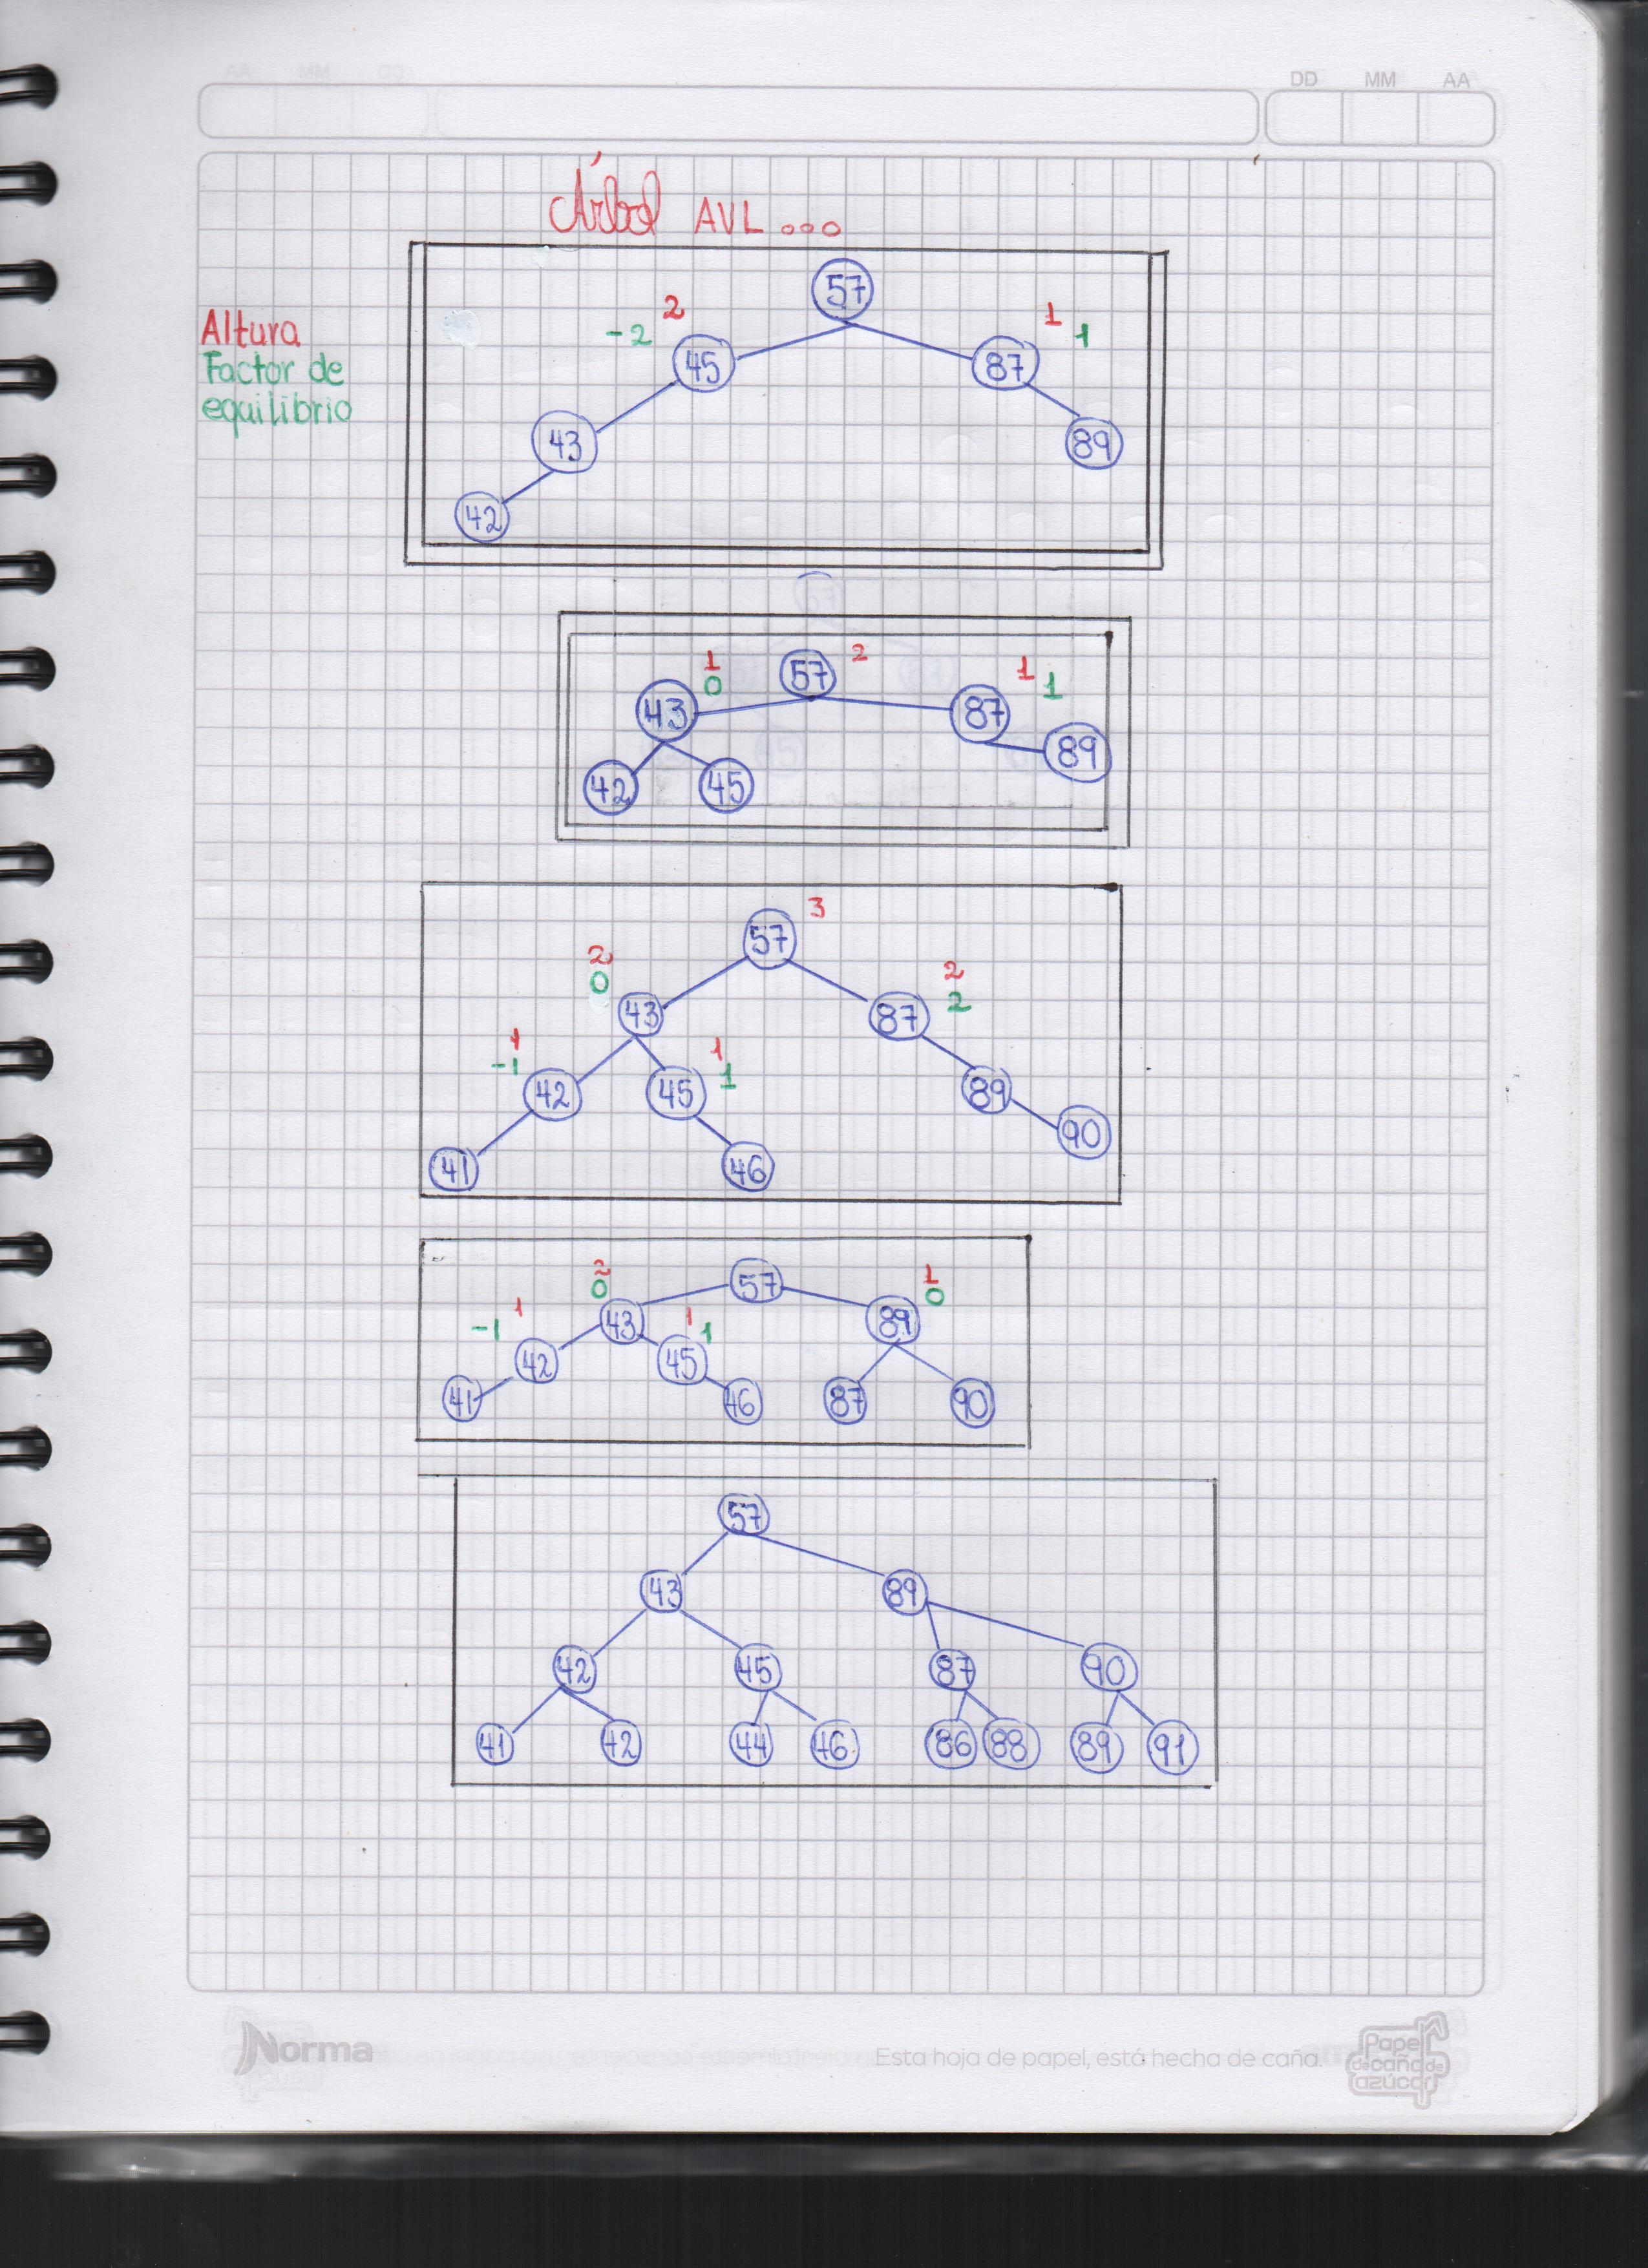 DD MM AA
Árbol AVL...
Altura
Factor de
equilibrio
57
2 1
-2 1
45 87
43 89
42
1 57 2 1
0 1
43 87
89
42 45
57 3
2 2
0 2
43 87
1 1
-1 1
42 45 89
90
41 46
2 57 1
0 0
1 43 1 89
-1 1
42 45
41 46 87 90
57
43 89
42 45 87 90
41 42 44 46 86 88 89 91
Norma
Esta hoja de papel, está hecha de caña.
Papel
de caña de
azúcar